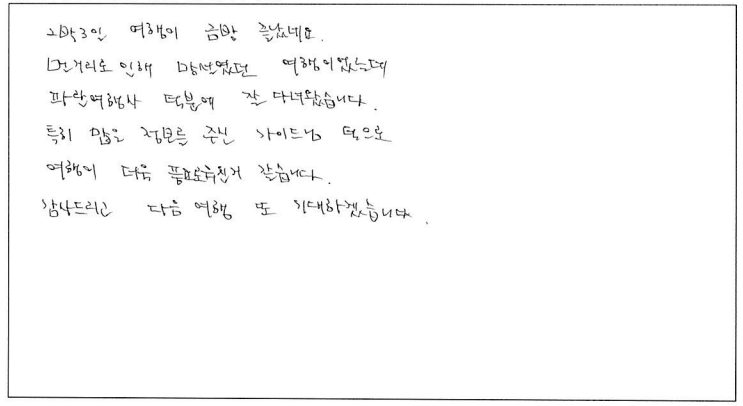 2박3일 여행이 금방 끝났네요.
먼거리로 인해 망설였던 여행이었는데
파란여행사 덕분에 잘 다녀왔습니다.
특히 많은 정보를 주신 가이드님 덕으로
여행이 더욱 풍요로워진거 같습니다.
감사드리고 다음 여행 또 기대하겠습니다.